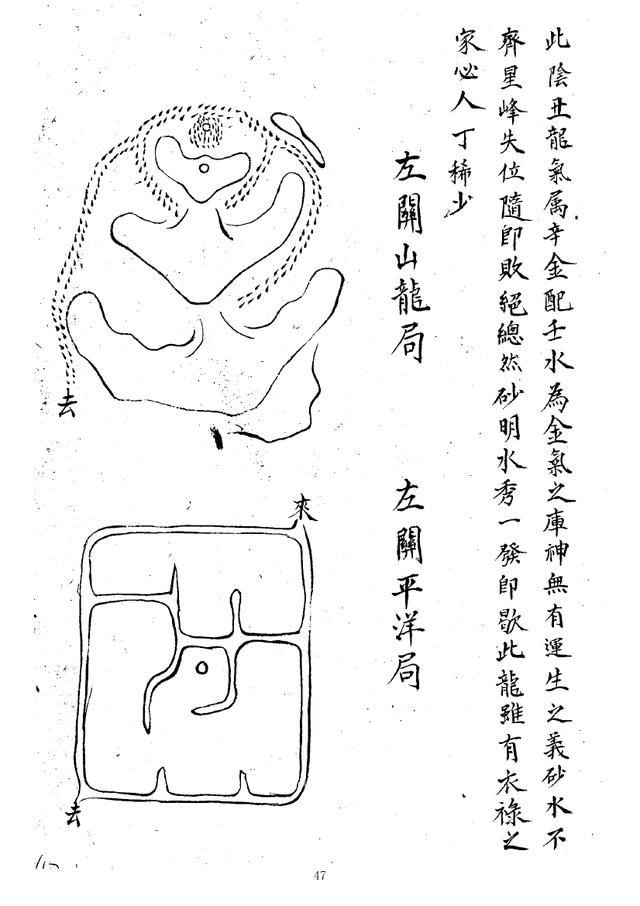 此陰丑龍氣属辛金配壬水為金氣之庫神無有運生之義砂水不
齊星峰失位隨即敗絕總然砂明水秀一發即歇此龍雖有衣祿之
家必人丁稀少
左關山龍局
左關平洋局
去
來
去
47